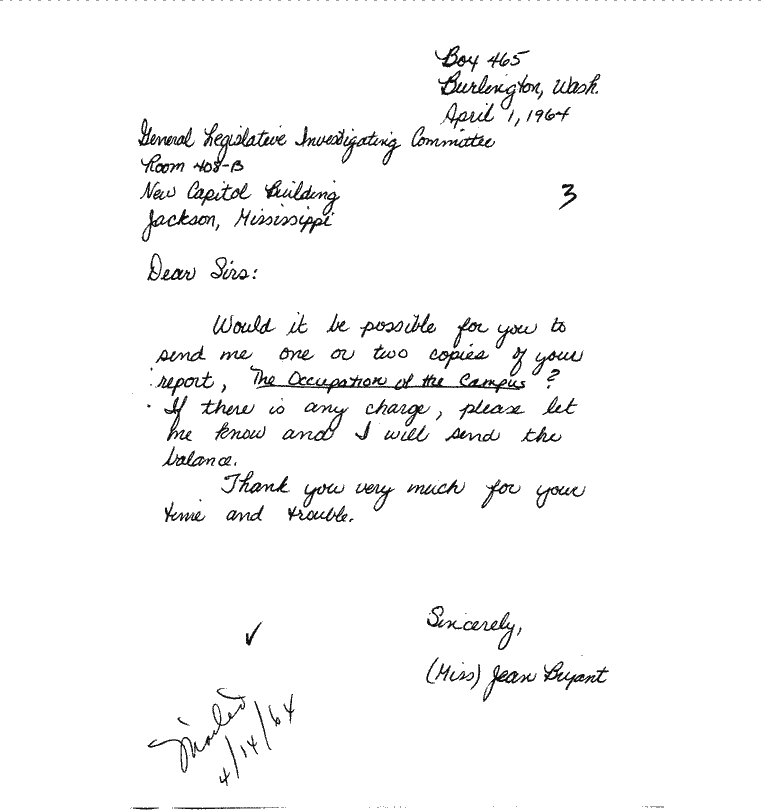 Box 465
Burlington, Wash.
April 1, 1964
General Legislative Investigating Committee
Room 408-B
New Capitol Building
Jackson, Mississippi
3
Dear Sirs:
Would it be possible for you to
send me one or two copies of your
report, The Occupation of the Campus?
If there is any charge, please let
me know and I will send the
balance.
Thank you very much for your
time and trouble.
Sincerely,
(Miss) Jean Bryant
✓
Mailed
4/14/64